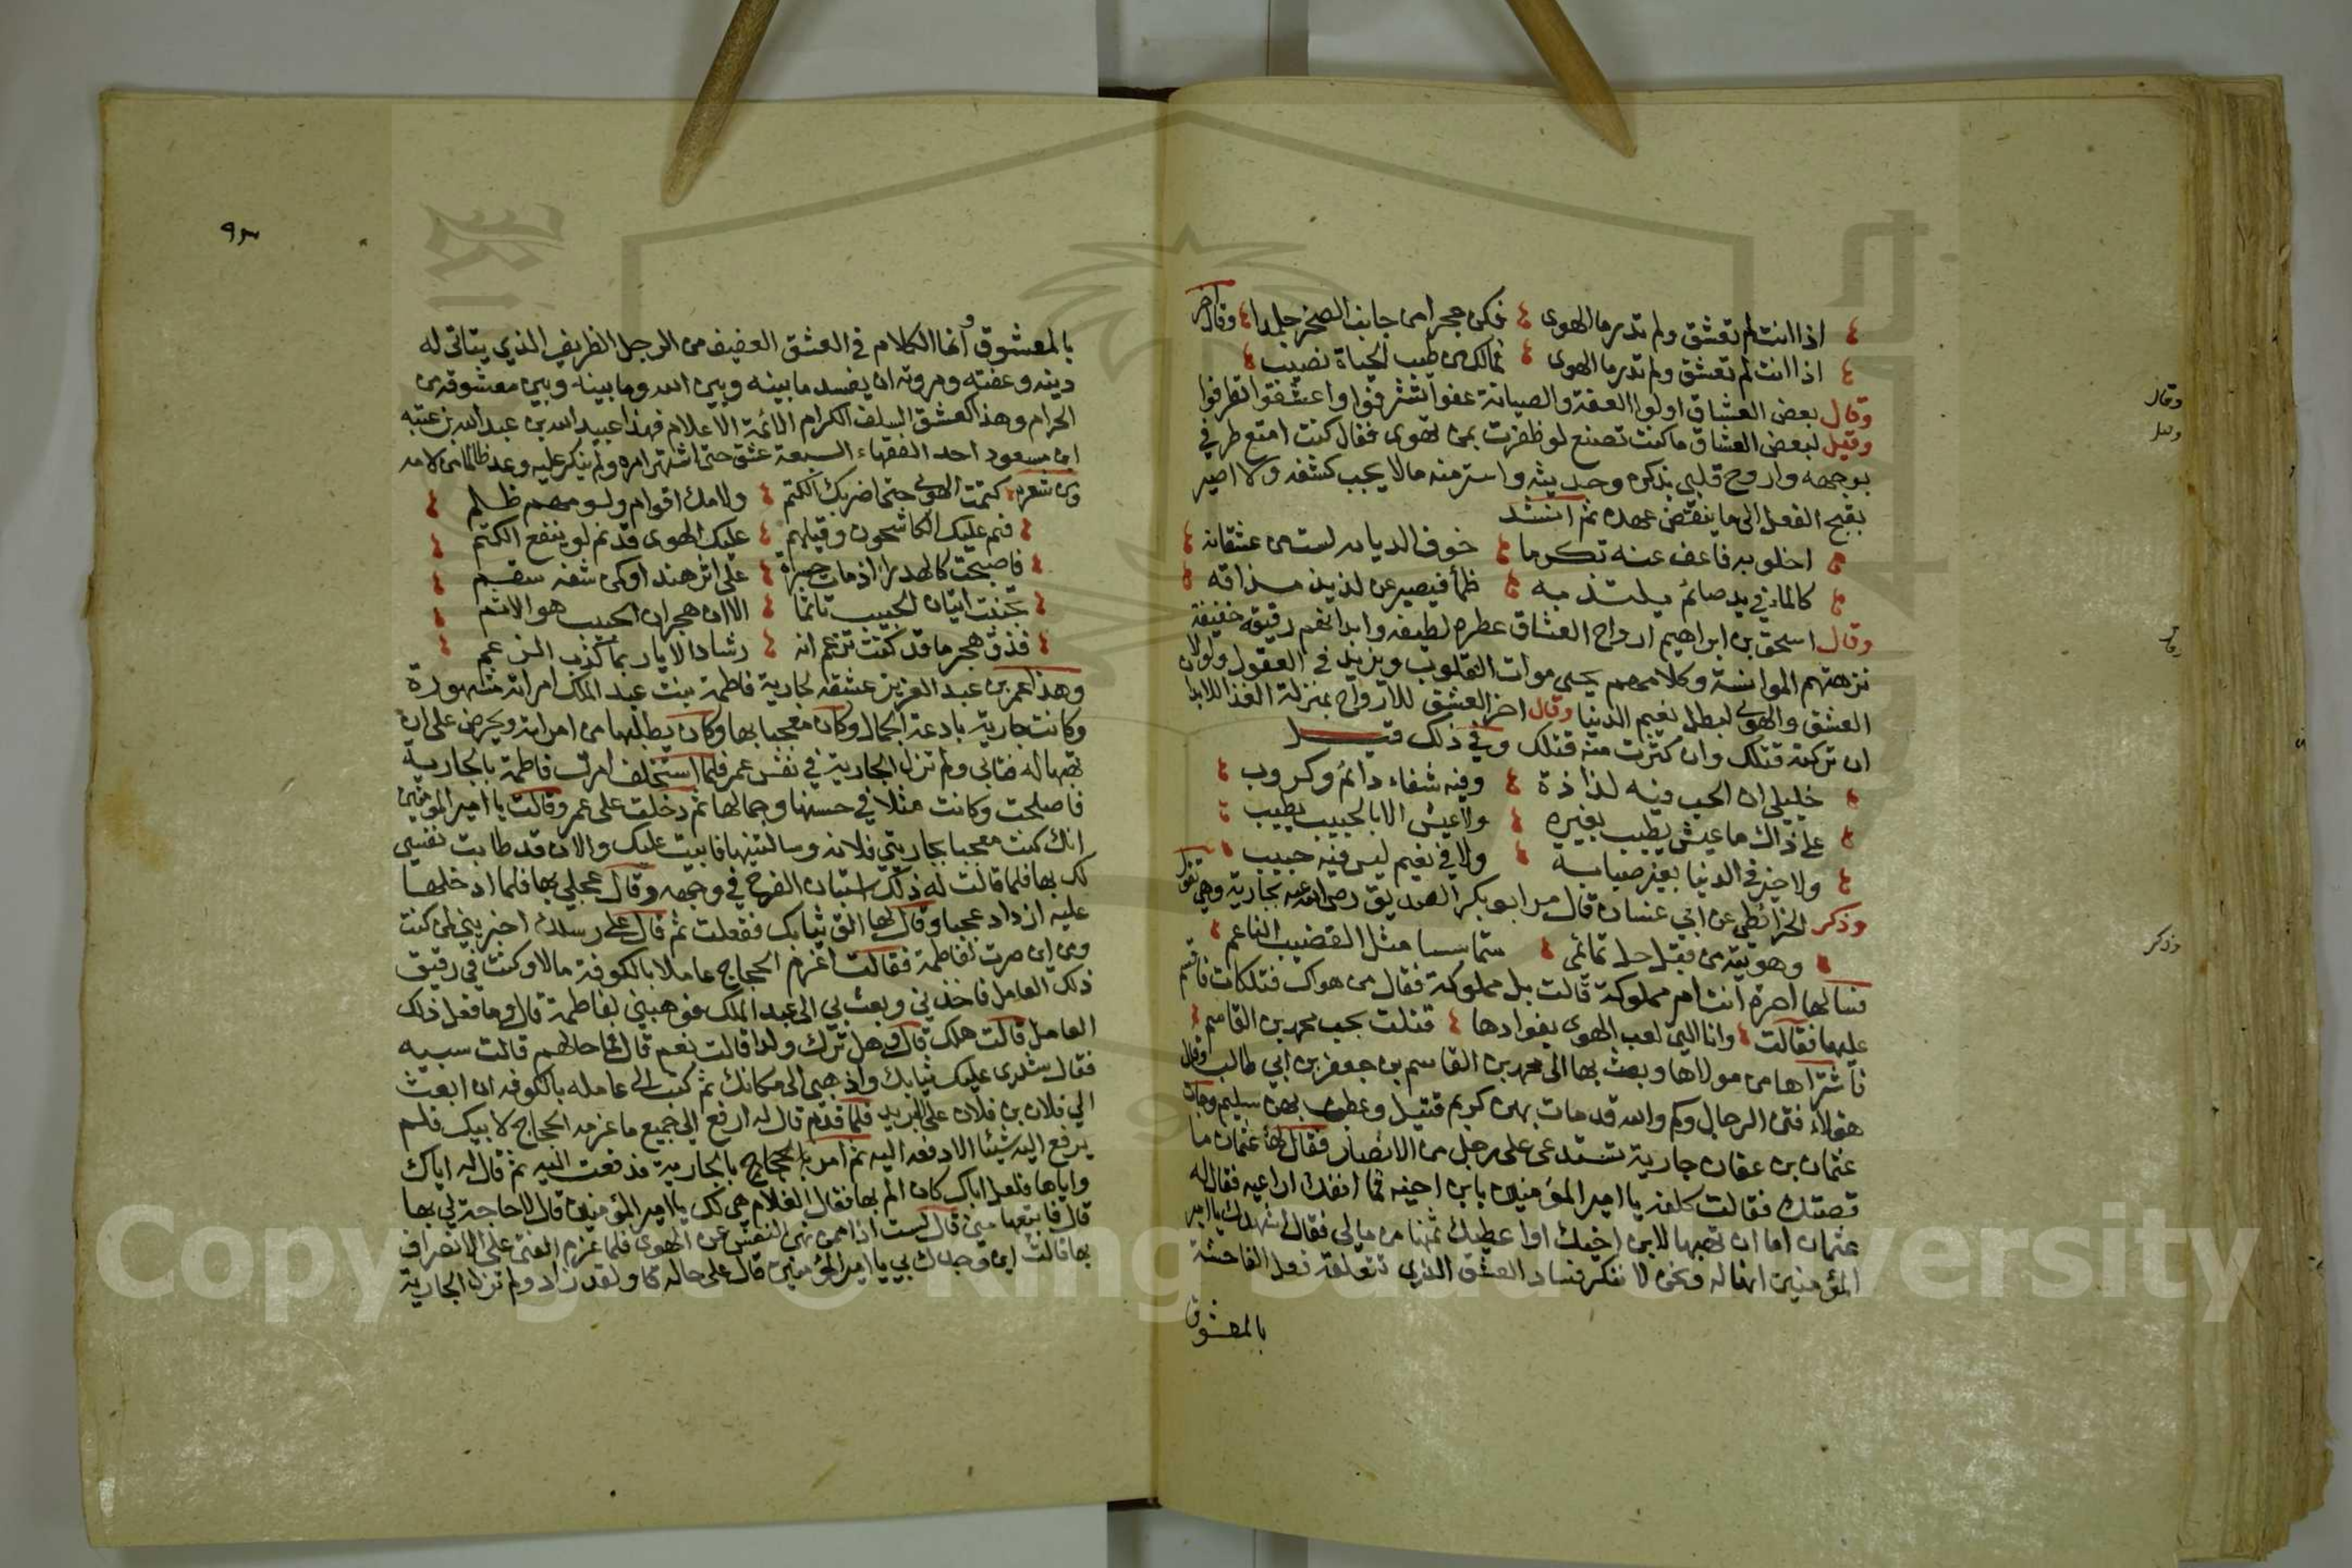 اذا انت لم تعشق ولم تدر ما الهوى فكن حجرا من جانب الصخر جلمدا وقال اخر
اذا انت لم تعشق ولم تدر ما الهوى فمالك من طيب الحياة نصيب
وقال بعض العشاق اولوا العفة والصيانة عفوا تشرفوا واعشقوا تظرفوا
وقيل لبعض العشاق ما كنت تصنع لو ظفرت بمن تهوى فقال كنت امتع طرفي
بوجهه واروح قلبي بذكره وحديثه واستر منه ما لا يحب كشفه ولا اصير
بقبح الفعل الى ما ينقض عهده ثم انشد
اخلو به فاعف عنه تكرما خوف الديانه لست من عشقانه
كالماء في يد صائم يلتذ به ظمأ فيصبر عن لذيذ مذاقه
وقال اسحق بن ابراهيم ارواح العشاق عطره لطيفه وابدانهم رقيقة خفيفة
نزهتهم الموانسة وكلامهم يحيى موات القلوب ويزيد في العقول ولولا
العشق والهوى لبطل نعيم الدنيا وقال اخر العشق للارواح بمنزلة الغذا للابدان
ان تركته قتلك وان كثرت منه قتلك وفي ذلك قيل
خليلي ان الحب فيه لذاذة وفيه شفاء دائم وكروب
على ذاك ما عيش يطيب بغيره ولا عيش الا بالحبيب يطيب
ولا خير في الدنيا بغير صبابة ولا في نعيم ليس فيه حبيب
وذكر الخرائطي عن ابي غسان قال مر ابو بكر الصديق رضي الله عنه بجارية وهي تقول
وهويته من قبل حل تمائمي متماسسا مثل القضيب الناعم
فسالها احرة انت ام مملوكة قالت بل مملوكة فقال من هواك فتلكات فاقسم
عليها فقالت وانا التي لعب الهوى بفوادها قتلت بحب محمد بن القاسم
فاشتراها من مولاها وبعث بها الى محمد بن القاسم بن جعفر بن ابي طالب وقال
هؤلاء فتن الرجال وكم والله قد مات بهن كريم قتيل وعطب بهن سليم وجات
عثمان بن عفان جارية تستدعى على رجل من الانصار فقال لها عثمان ما
قصتك فقالت كلفت يا امير المؤمنين بابن اخيه فما انفك اراعيه فقال له
عثمان اما ان تهبها لابن اخيك او اعطيك ثمنها من مالي فقال اشهدك يا امير
المؤمنين انها له ونحن لا ننكر فساد العشق الذي تتعلقه فعل الفاحشة
بالمعشوق
٩٣
بالمعشوق وانما الكلام في العشق العفيف من الرجل الظريف الذي يتاتى له
دينه وعفته ومروته ان يفسد ما بينه وبين الله وما بينه وبين معشوقه من
الحرام وهذا كعشق السلف الكرام الائمة الاعلام فهذا عبيد الله بن عبد الله بن عتبه
ابن مسعود احد الفقهاء السبعة عشق حتى اشتهر امره ولم ينكر عليه وعد ظالما من لامه
ومن شعره كتمت الهوى حتى اضر بك الكتم ولامك اقوام ولومهم ظلم
فنم عليك الكاشحون وقبلهم عليك الهوى قد نم لو ينفع الكتم
فاصبحت كالهدى اذ مات حسرة على اثر هند او كمن شفه سقم
تجنبت اتيان الحبيب تاثما الا ان هجران الحبيب هو الاثم
فذق هجر ما قد كنت تزعم انه رشاد الا يا ربما كذب الزعم
وهذا عمر بن عبد العزيز عشقه لجارية فاطمة بنت عبد الملك امراته مشهورة
وكانت جارية بارعة الجمال وكان معجبا بها وكان يطلبها من امراته ويحرض على ان
تهبها له فتابى ولم تزل الجارية في نفس عمر فلما استخلف امرت فاطمة بالجارية
فاصلحت وكانت مثلا في حسنها وجمالها ثم دخلت على عمر وقالت يا امير المومنين
انك كنت معجبا بجاريتي فلانه وسالتنيها فابيت عليك والان قد طابت نفسي
لك بها فلما قالت له ذلك استبان الفرح في وجهه وقال عجلي بها فلما ادخلتها
عليه ازداد عجبا وقال لها القى ثيابك ففعلت ثم قال على رسلك اخبريني لمن كنت
ومن اين صرت لفاطمة فقالت اغرم الحجاج عاملا بالكوفة مالا وكنت في رقيق
ذلك العامل فاخذني وبعث بي الى عبد الملك فوهبني لفاطمة قال وما فعل ذلك
العامل قالت هلك قال وهل ترك ولدا قالت نعم قال فما حالهم قالت سيئه
فقال شدى عليك ثيابك واذهبى الى مكانك ثم كتب الى عامله بالكوفه ان ابعث
الي فلان بن فلان على البريد فلما قدم قال له ارفع الي جميع ما غرمه الحجاج لابيك فلم
يرفع اليه شيئا الا دفعه اليه ثم امر بالجارية فدفعت اليه ثم قال له اياك
واياها فلعل اباك كان الم بها فقال الغلام هي لك يا امير المؤمنين قال لا حاجة لي بها
قال فابتعها مني قال لست اذا ممن نهى النفس عن الهوى فلما عزم الفتى على الانصراف
بها قالت اين وجدك بي يا امير المؤمنين قال على حاله ولقد زاد ولم تزل الجارية
وقال
وقيل
وقال
وذكر
Copyright © King Saud University